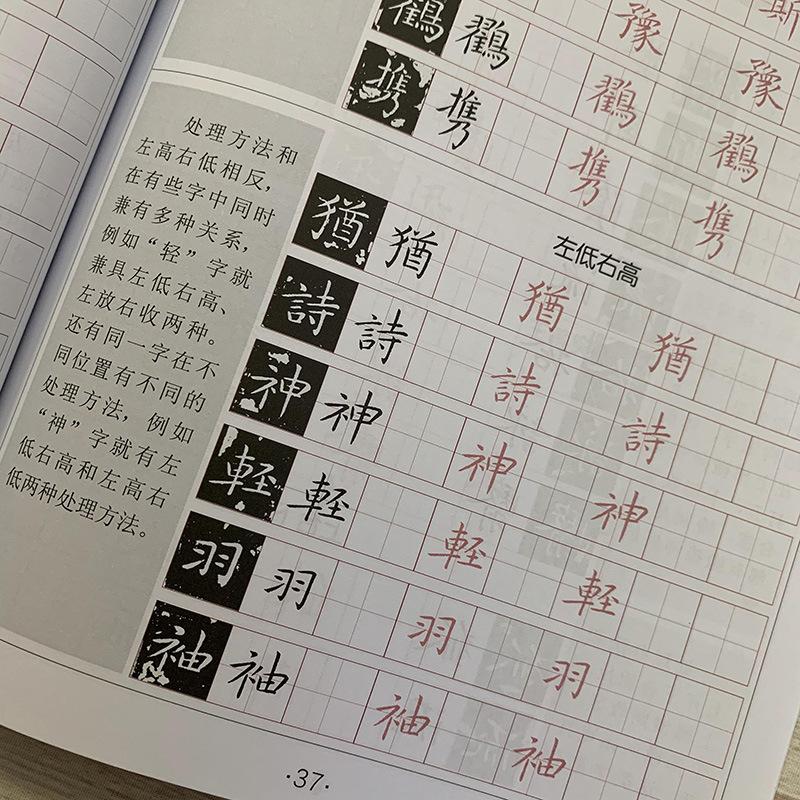 斯
豫 豫
携 携 携 携
左低右高
处理方法和
左高右低相反，
在有些字中同时
兼有多种关系，
例如“轻”字就
兼具左低右高、
左放右收两种。
还有同一字在不
同位置有不同的
处理方法，例如
“神”字就有左
低右高和左高右
低两种处理方法。
猶 猶 猶 猶
詩 詩 詩 詩
神 神 神 神
軽 軽 軽 軽
羽 羽 羽 羽
袖 袖 袖 袖
·37·